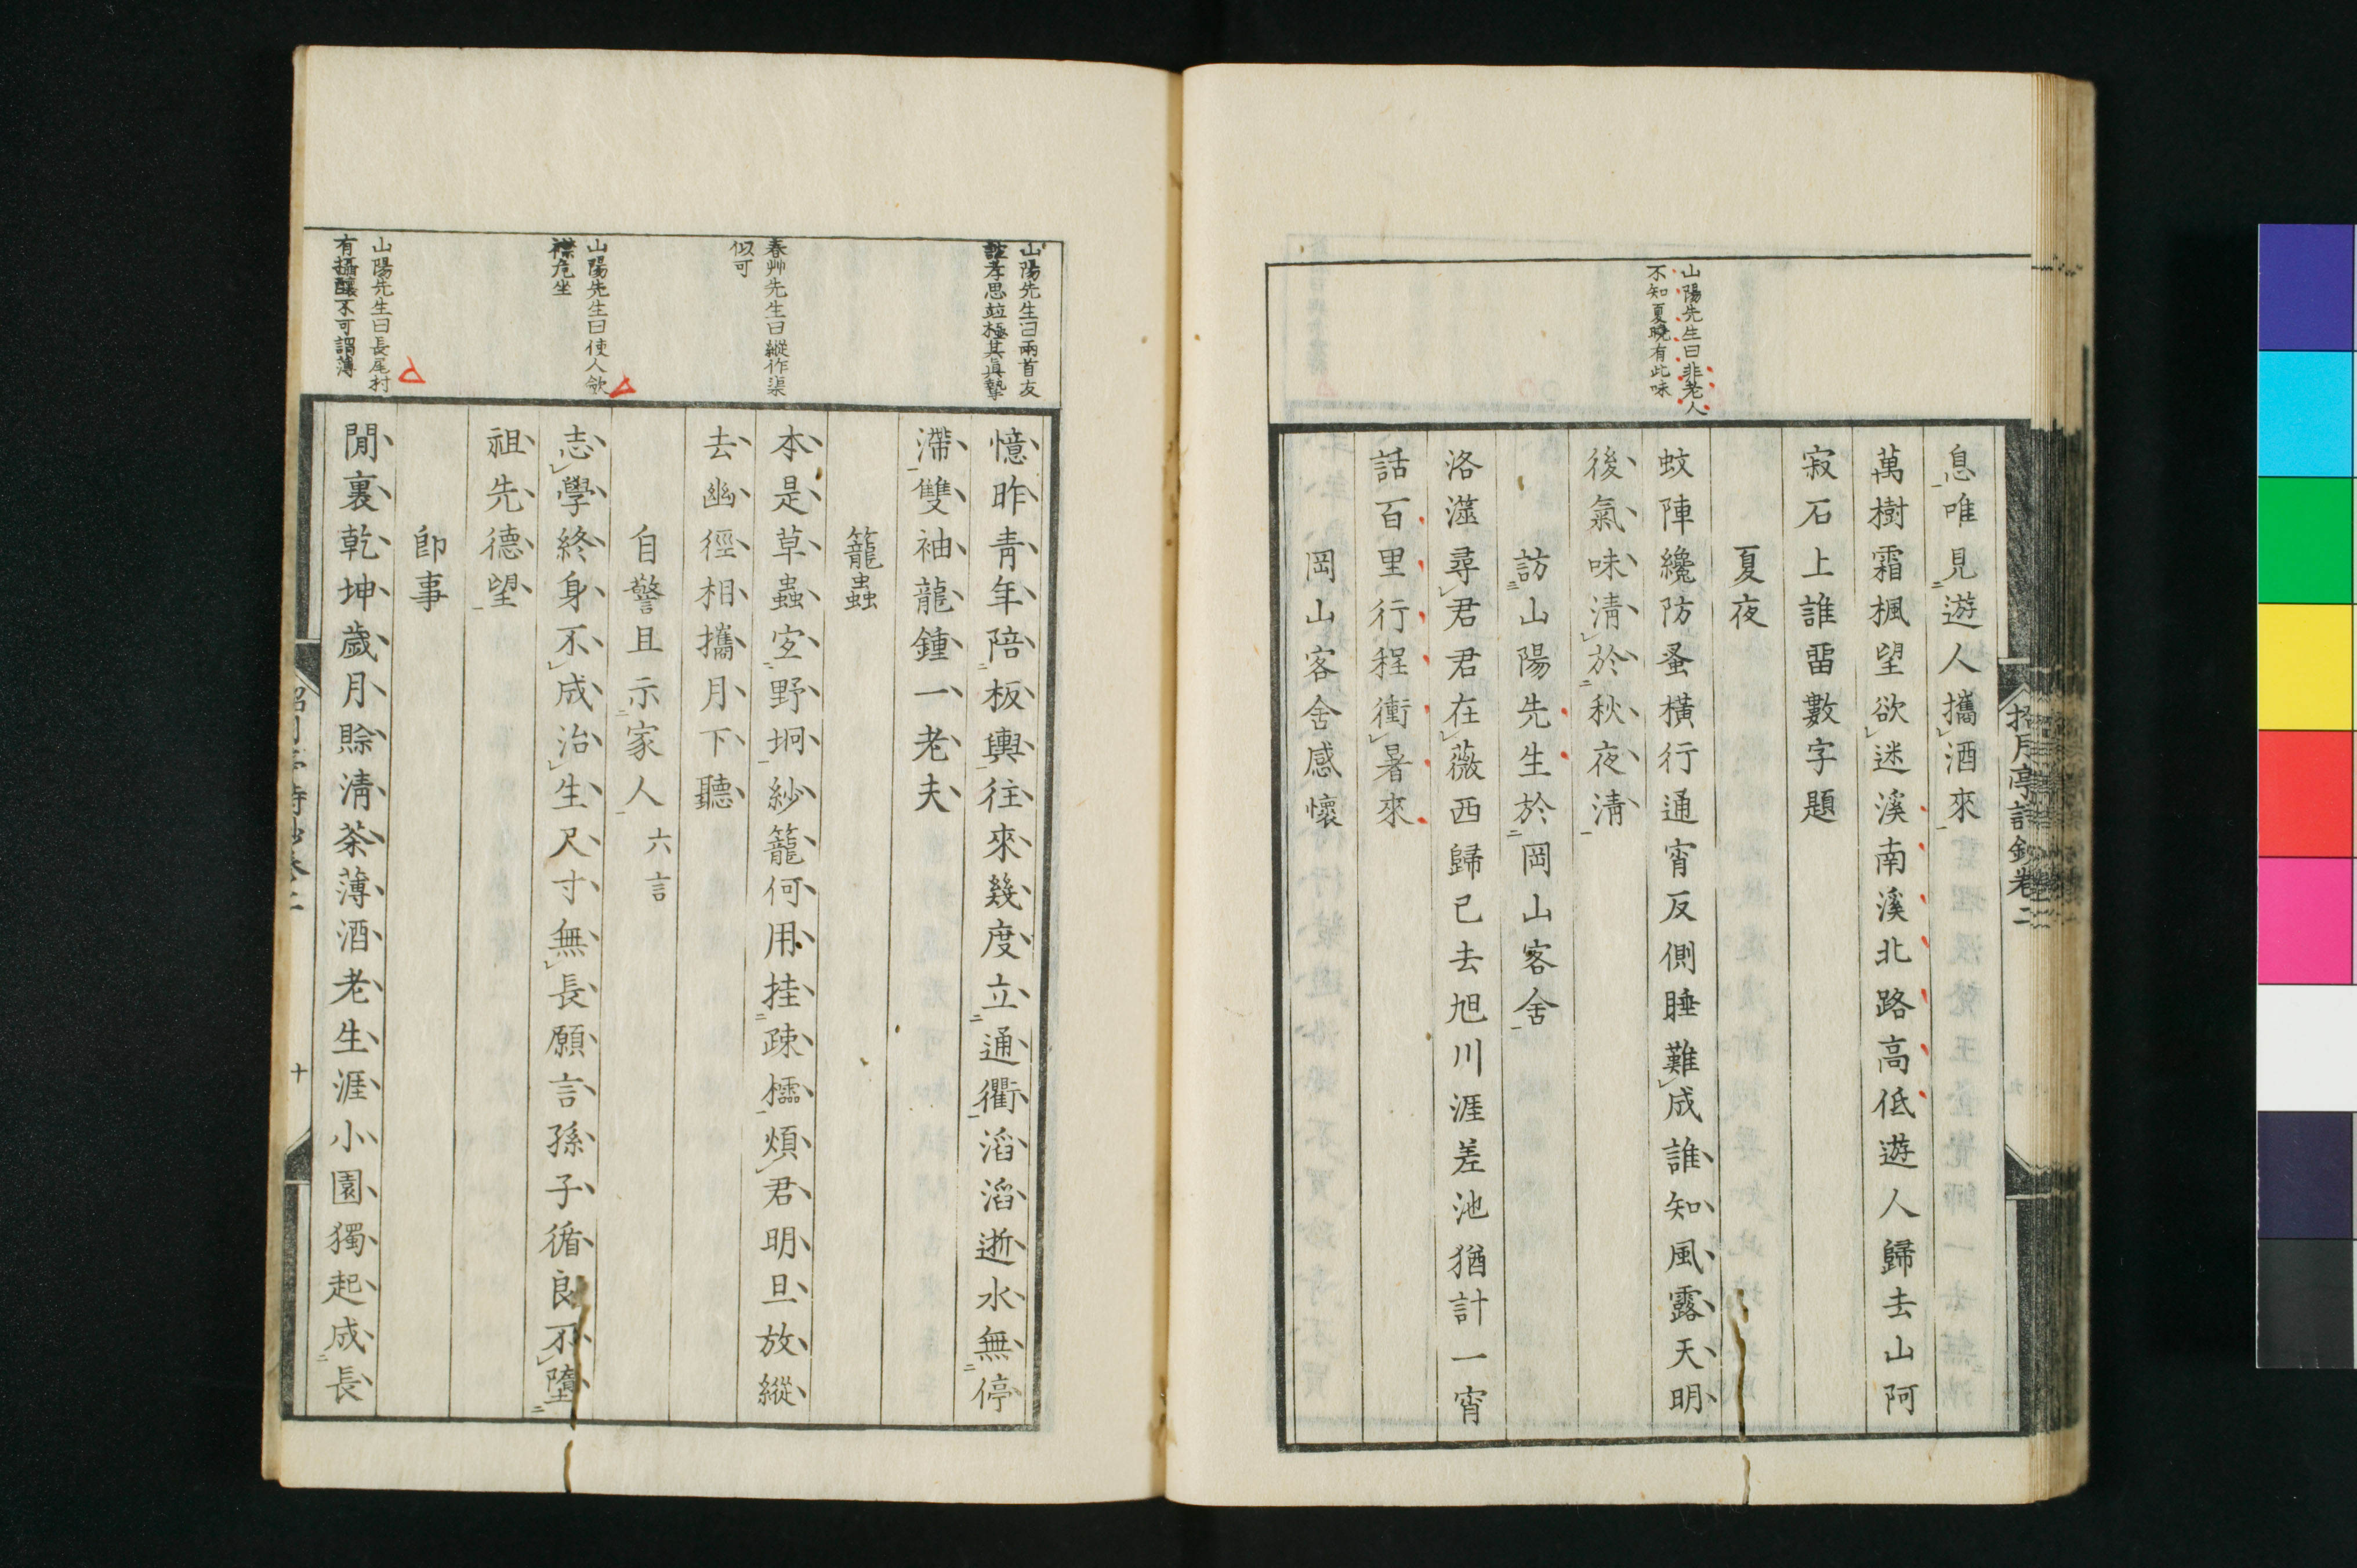 山陽先生曰非老人
不知夏曉有此味
息唯見遊人攜酒來
萬樹霜楓望欲迷溪南溪北路高低遊人歸去山阿
寂石上誰畱數字題
夏夜
蚊陣纔防蚤橫行通宵反側睡難成誰知風露天明
後氣味淸於秋夜淸
訪山陽先生於岡山客舍
洛澨尋君君在薇西歸已去旭川涯差池猶計一宵
話百里行程衝暑來
岡山客舍感懷
招月亭詩鈔卷二
山陽先生曰兩首友
誼孝思竝極其眞摯
春艸先生曰縱作渠
似可
山陽先生曰使人斂
襟危坐
山陽先生曰長尾村
有攝釀不可謂薄
憶昨靑年陪板輿往來幾度立通衢滔滔逝水無停
滯雙袖龍鍾一老夫
籠蟲
本是草蟲宜野坰紗籠何用挂疎櫺煩君明旦放縱
去幽徑相攜月下聽
自警且示家人 六言
志學終身不成治生尺寸無長願言孫子循良不墮
祖先德望
卽事
閒裏乾坤歲月賒淸茶薄酒老生涯小園獨起成長
十